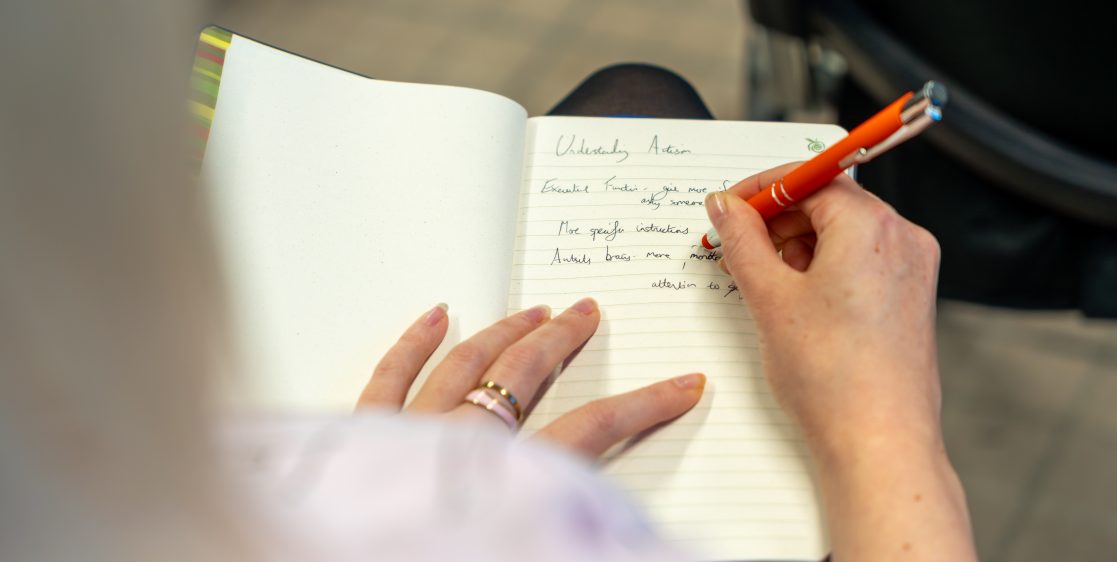 Understanding Autism
Executive Function - give more
asking someone
More specific instructions
Autistic brains - more
attention to